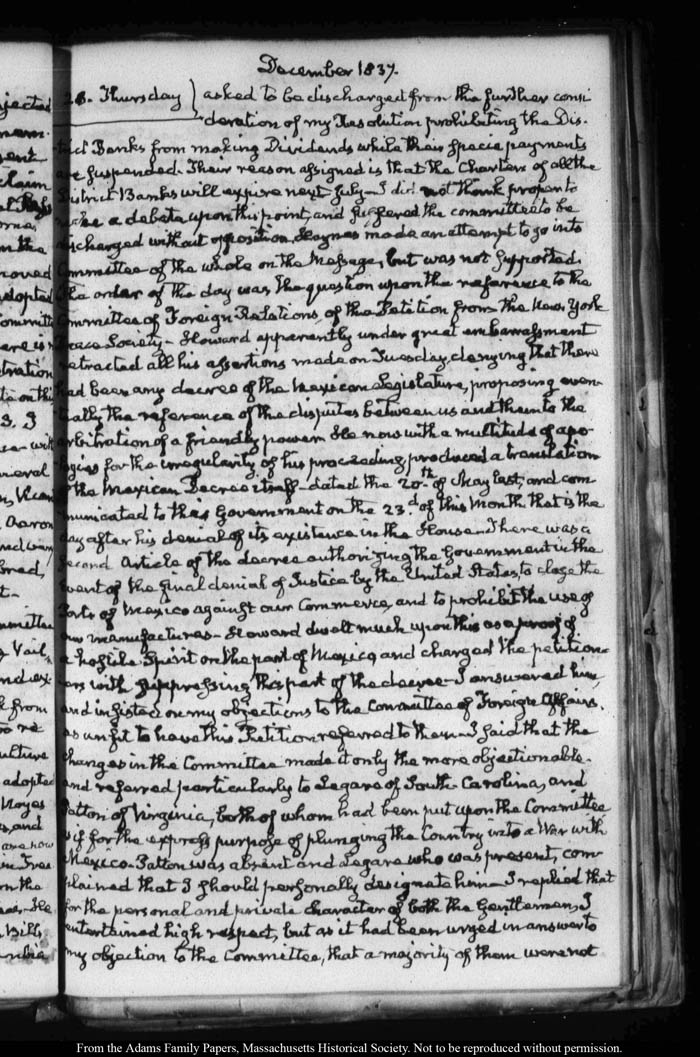 December 1837.
28. Thursday asked to be discharged from the further consi
deration of my Resolution prohibiting the Dis-
trict Banks from making Dividends while their specie payments
are suspended. Their reason assigned is that the Charters of all the
District Banks will expire next July. I did not think proper to
make a debate upon this point, and suffered the committee to be
discharged without opposition. Haynes made an attempt to go into
Committee of the whole on the Message, but was not supported.
The order of the day was the question upon the reference to the
Committee of Foreign Relations, of the Petition from the New York
Peace Society - Howard apparently under great embarrassment
retracted all his assertions made on Tuesday, denying that there
had been any decree of the Mexican Legislature, proposing even-
tually the reference of the disputes between us and them to the
arbitration of a friendly power. He now with a multitude of apo-
logies for the irregularity of his proceeding produced a translation
of the Mexican Decree itself - dated the 20th. of May last, and com-
municated to this Government on the 23d. of this Month that is the
day after his denial of its existence in the House. There was a
second Article of the decree authorizing the Government in the
event of the final denial of Justice by the United States, to close the
Ports of Mexico against our Commerce, and to prohibit the use of
our manufactures - Howard dwelt much upon this as a proof of
a hostile Spirit on the part of Mexico, and charged the petition-
ers with suppressing this part of the decree - I answered him,
and insisted on my objections to the Committee of Foreign Affairs,
as unfit to have this Petition referred to them - I said that the
changes in the Committee made it only the more objectionable.
and referred particularly to Legare of South-Carolina, and
Patton of Virginia, both of whom had been put upon the Committee
as if for the express purpose of plunging the Country into a War with
Mexico. Patton was absent and Legare who was present, com-
plained that I should personally designate him - I replied that
for the personal and private character of both the Gentlemen, I
entertained high respect, but as it had been urged in answer to
my objection to the Committee, that a majority of them were not
From the Adams Family Papers, Massachusetts Historical Society. Not to be reproduced without permission.